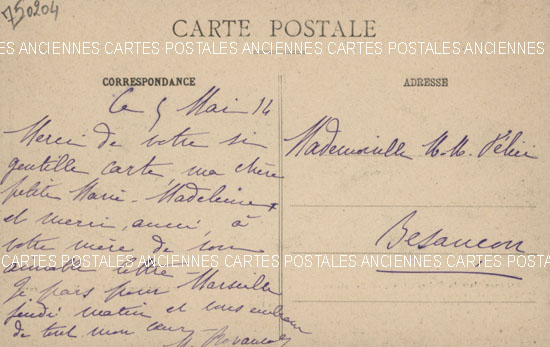 750204
CARTE POSTALE
ES ANCIENNES CARTES POSTALES ANCIENNES CARTES POSTALES ANCIENNES
CORRESPONDANCE
Ce 5 Mai 14
Merci de votre si
gentille carte, ma chère
petite Marie-Madeleine
et merci, aussi, à
votre mère de son
aimable lettre
Je pars pour Marseille
jeudi matin et vous embrasse
de tout mon cœur
ADRESSE
Mademoiselle M. M.
Besançon
ES ANCIENNES CARTES POSTALES ANCIENNES CARTES POSTALES ANCIENNES